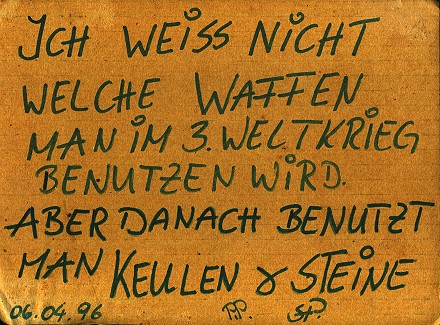 ICH WEISS NICHT
WELCHE WAFFEN
MAN IM 3. WELTKRIEG
BENUTZEN WIRD.
ABER DANACH BENUTZT
MAN KEULEN & STEINE
06.04.96